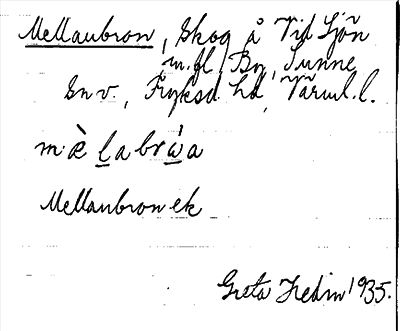 Mellanbron, Skog å Vid Sjön
m. fl. By, Sunne
Sn v., Fryksd. hd, Värml. l.
mæ̀labrẁa
Mellanbron ek
Greta Hedin 1935.